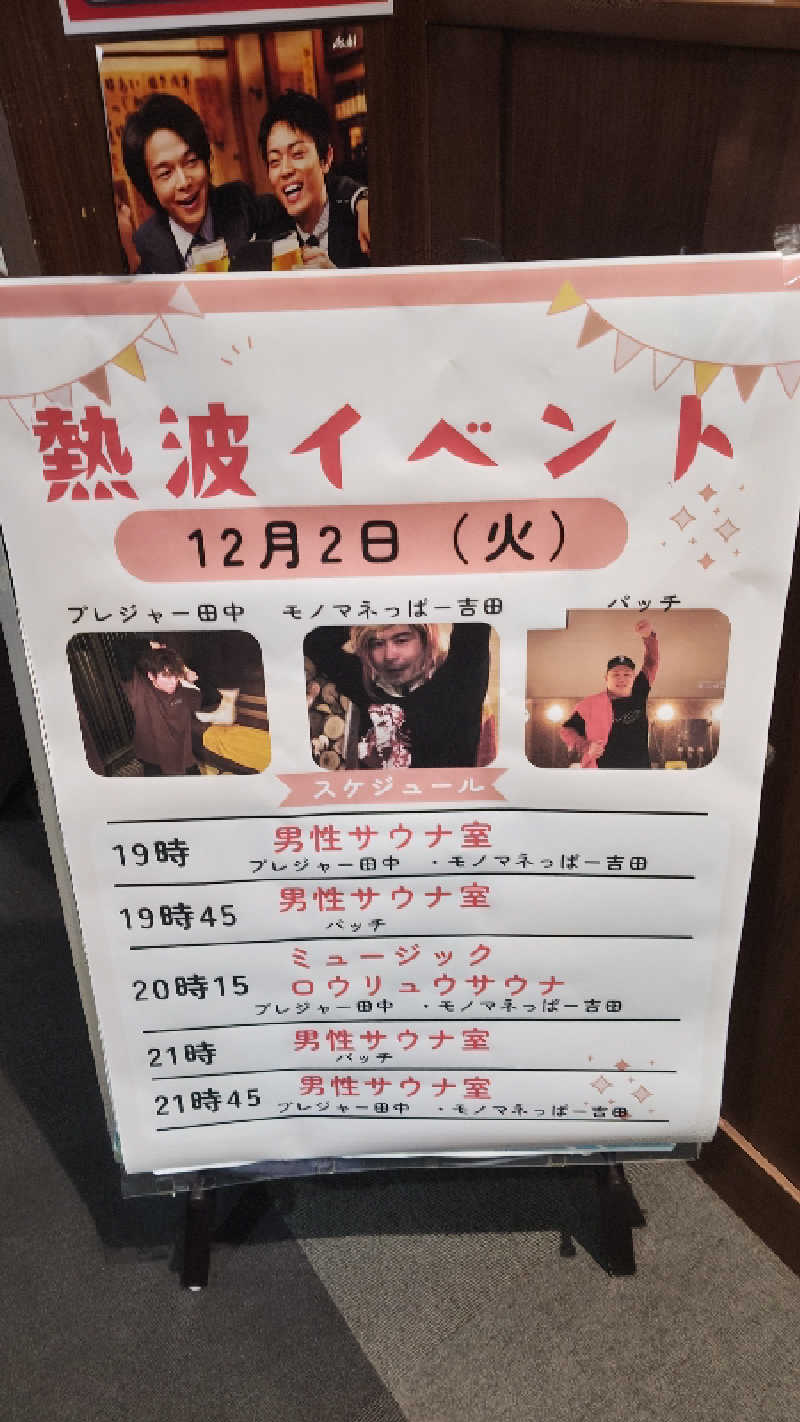 Asahi
熱波イベント
12月2日（火）
プレジャー田中 モノマネっぱー吉田 パッチ
スケジュール
19時 男性サウナ室
プレジャー田中 ・モノマネっぱー吉田
19時45 男性サウナ室
パッチ
ミュージック
20時15 ロウリュウサウナ
プレジャー田中 ・モノマネっぱー吉田
21時 男性サウナ室
パッチ
21時45 男性サウナ室
プレジャー田中 ・モノマネっぱー吉田